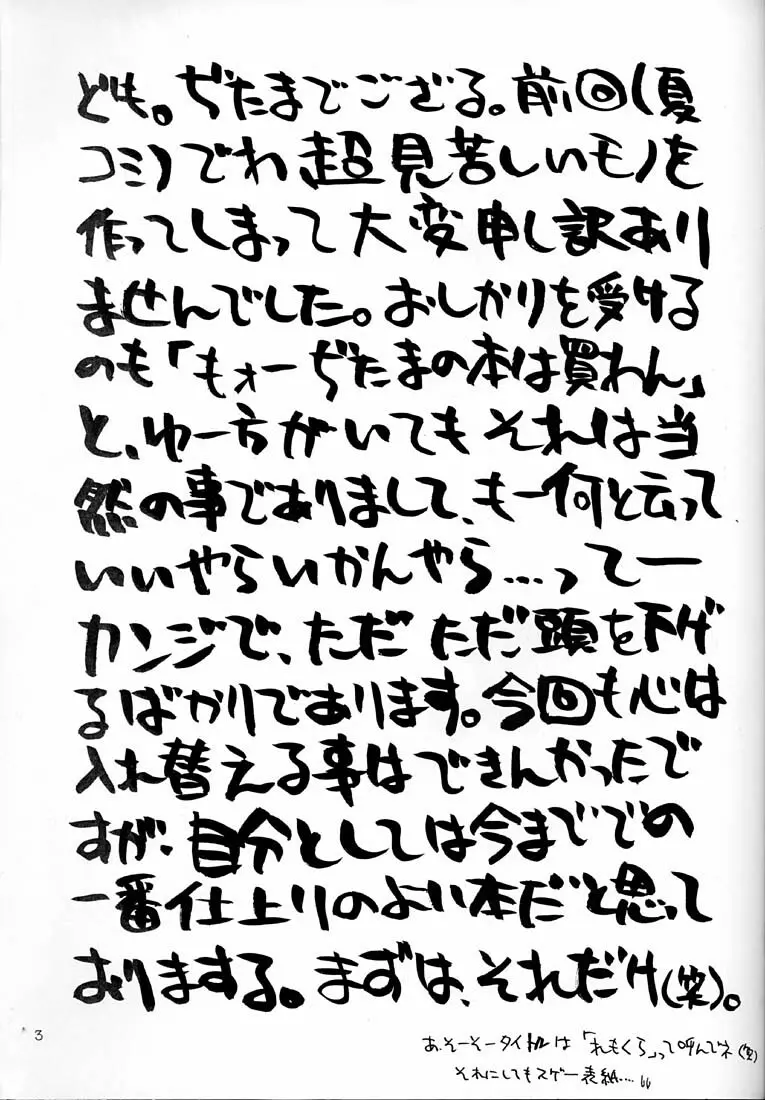 ども。ぢたまでござる。前回(夏
コミ)でわ超見苦しいモノを
作ってしまって大変申し訳あり
ませんでした。おしかりを受ける
のも「もォーぢたまの本は買わん」
と、ゆー方がいてもそれは当
然の事でありまして、も一何と云って
いいやらいかんやら…って一
カンジで、ただただ頭を下げ
るばかりであります。今回も心は
入れ替える事はできんかったで
すが、自分としては今まででの
一番仕上りのよい本だと思って
おりまする。まずは、それだけ(笑)。
あ、そーそータイトルは「れもくら」って呼んでネ(笑)
それにしてもスゲー表紙....
3